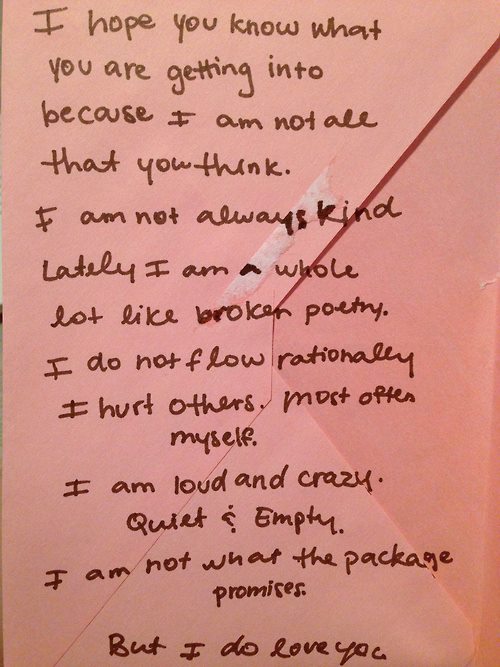 I hope you know what
you are getting into
because I am not all
that you think.
I am not always kind
Lately I am a whole
lot like broken poetry.
I do not flow rationally
I hurt others. most often
myself.
I am loud and crazy.
Quiet & Empty.
I am not what the package
promises.
But I do love you